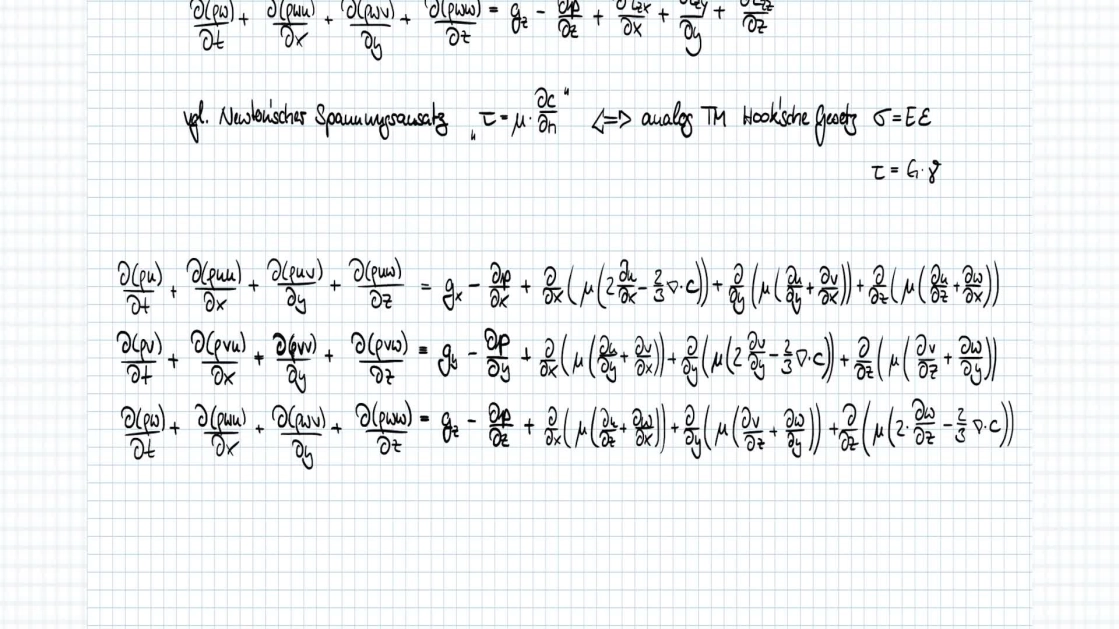 ∂(ρw)/∂t + ∂(ρwu)/∂x + ∂(ρwv)/∂y + ∂(ρww)/∂z = g_z − ∂p/∂z + ∂τ_zx/∂x + ∂τ_zy/∂y + ∂τ_zz/∂z
vgl. Newton'scher Spannungsansatz „τ = μ · ∂c/∂n“ <=> analog TM Hook'sche Gesetz σ = Eε
τ = G · γ
∂(ρu)/∂t + ∂(ρuu)/∂x + ∂(ρuv)/∂y + ∂(ρuw)/∂z = g_x − ∂p/∂x + ∂/∂x (μ(2 ∂u/∂x − 2/3 ∇·c)) + ∂/∂y (μ(∂u/∂y + ∂v/∂x)) + ∂/∂z (μ(∂u/∂z + ∂w/∂x))
∂(ρv)/∂t + ∂(ρvu)/∂x + ∂(ρvv)/∂y + ∂(ρvw)/∂z = g_y − ∂p/∂y + ∂/∂x (μ(∂u/∂y + ∂v/∂x)) + ∂/∂y (μ(2 ∂v/∂y − 2/3 ∇·c)) + ∂/∂z (μ(∂v/∂z + ∂w/∂y))
∂(ρw)/∂t + ∂(ρwu)/∂x + ∂(ρwv)/∂y + ∂(ρww)/∂z = g_z − ∂p/∂z + ∂/∂x (μ(∂u/∂z + ∂w/∂x)) + ∂/∂y (μ(∂v/∂z + ∂w/∂y)) + ∂/∂z (μ(2 · ∂w/∂z − 2/3 ∇·c))